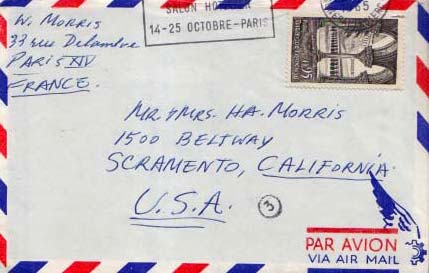 W. MORRIS
33 rue Delambre
PARIS XIV
FRANCE.
SALON
14-25 OCTOBRE-PARIS
MR & MRS. HA. MORRIS
1500 BELTWAY
SCRAMENTO, CALIFORNIA.
U.S.A.
3
PAR AVION
VIA AIR MAIL